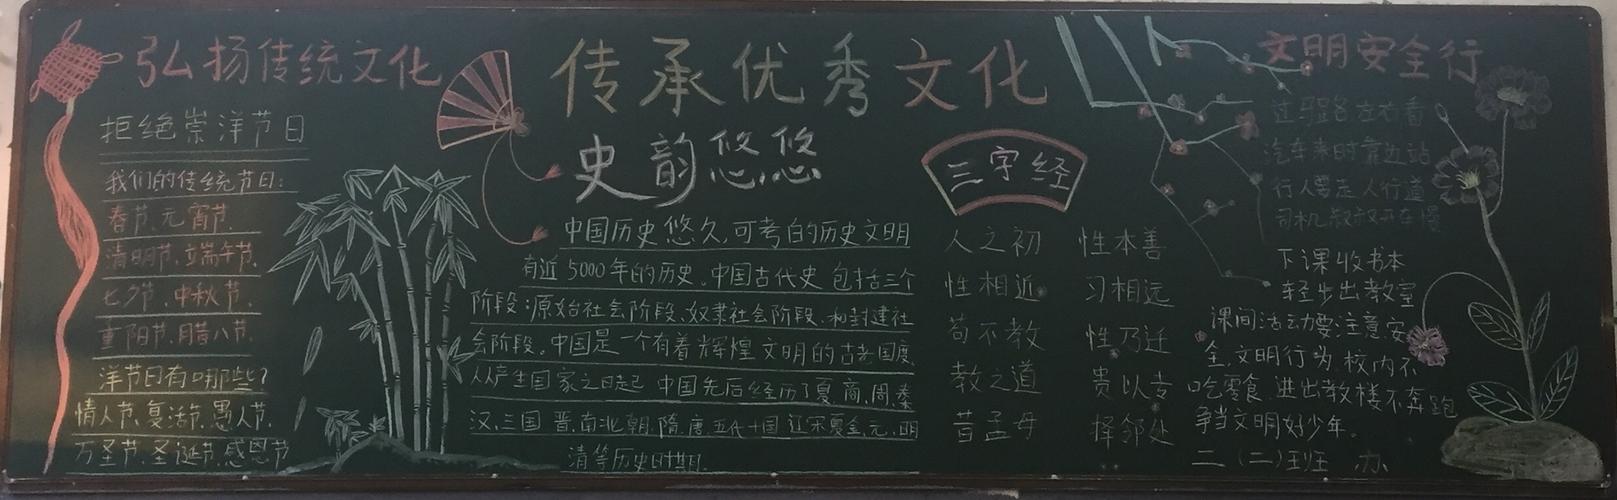 弘扬传统文化
拒绝崇洋节日
我们的传统节日：
春节、元宵节、
清明节、端午节、
七夕节、中秋节、
重阳节、腊八节、
洋节日有哪些？
情人节、复活节、愚人节、
万圣节、圣诞节、感恩节
传承优秀文化
史韵悠悠
中国历史悠久，可考的历史文明
有近5000年的历史。中国古代史包括三个
阶段：原始社会阶段、奴隶社会阶段、和封建社
会阶段。中国是一个有着辉煌文明的古老国度，
从产生国家之日起 中国先后经历了夏、商、周、秦
汉、三国 晋、南北朝、隋、唐、五代十国 辽宋夏金、元、明
清等历史时期。
三字经
人之初 性本善
性相近 习相远
苟不教 性乃迁
教之道 贵以专
昔孟母 择邻处
文明安全行
过马路左右看
汽车来时靠边站
行人要走人行道
司机叔叔开车慢
下课收书本
轻步出教室
课间活动要注意安
全，文明行为 校内不
吃零食 进出教楼不奔跑
争当文明好少年。
二（二）班 办